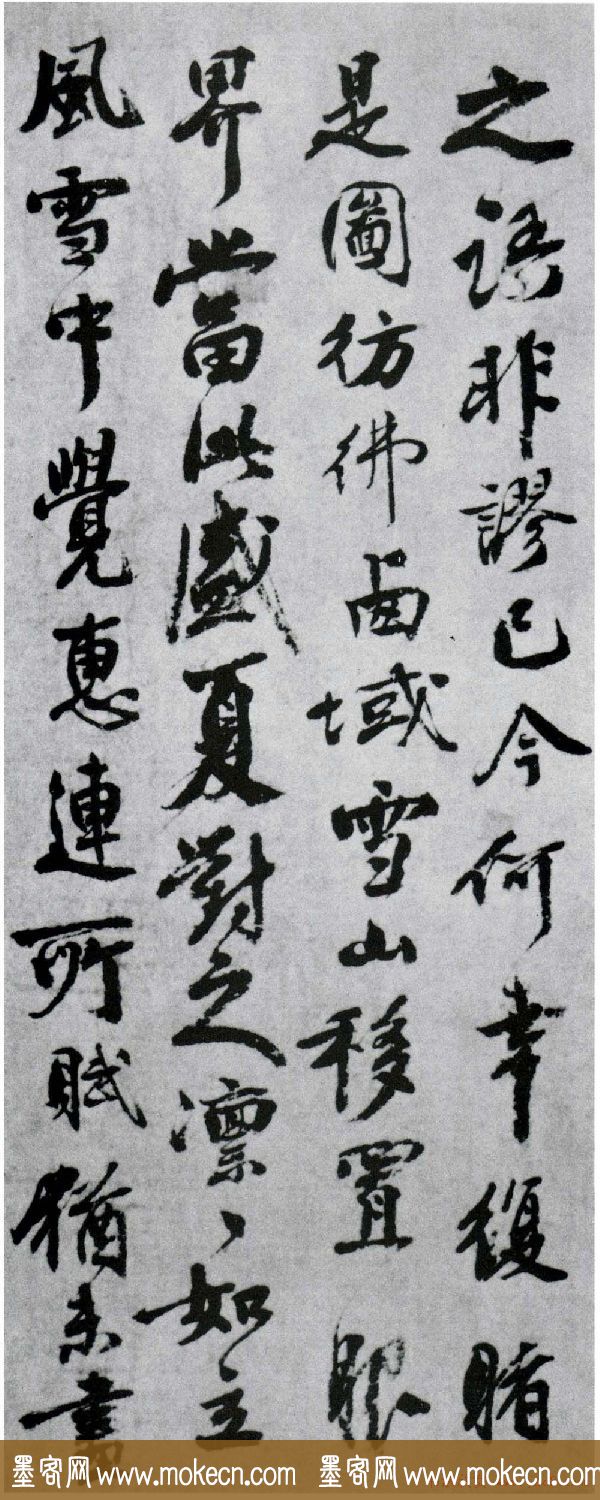 之語非謬已今何幸復睹
是圖彷彿西域雪山移置眼
界當此盛夏對之凛〻如立
風雪中覺惠連所賦猶未盡
墨客网 www.mokecn.com 墨客网 www.mokecn.com